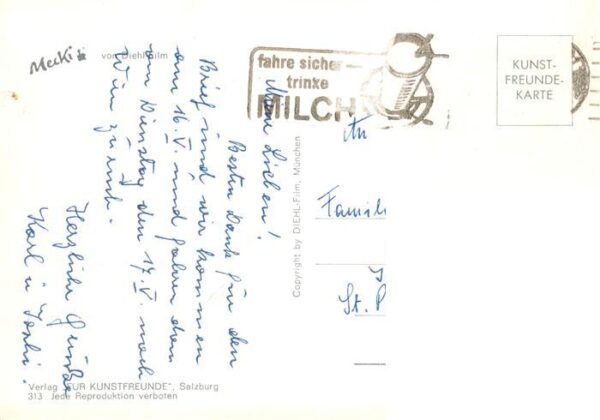 Mecki
von Diehl-Film
fahre sicher
trinke
MILCH
KUNST-
FREUNDE-
KARTE
Meine Lieben!
Besten Dank für den
Brief und wir kommen
am 16. V. und fahren dann
am Dienstag den 17. V. nach
Wien zurück.
Herzliche Grüße
Karl u
An
Famili
St. P
Copyright by DIEHL-Film, München
Verlag "FÜR KUNSTFREUNDE", Salzburg
313 Jede Reproduktion verboten